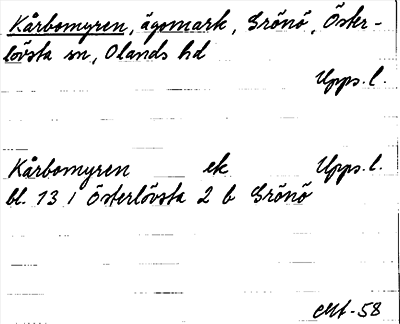 Kårbomyren, ägomark, Grönö, Öster-
lövsta sn, Olands hd
Upps. l.
Kårbomyren ek Upps. l.
bl. 13 i Österlövsta 2 b Grönö
-58